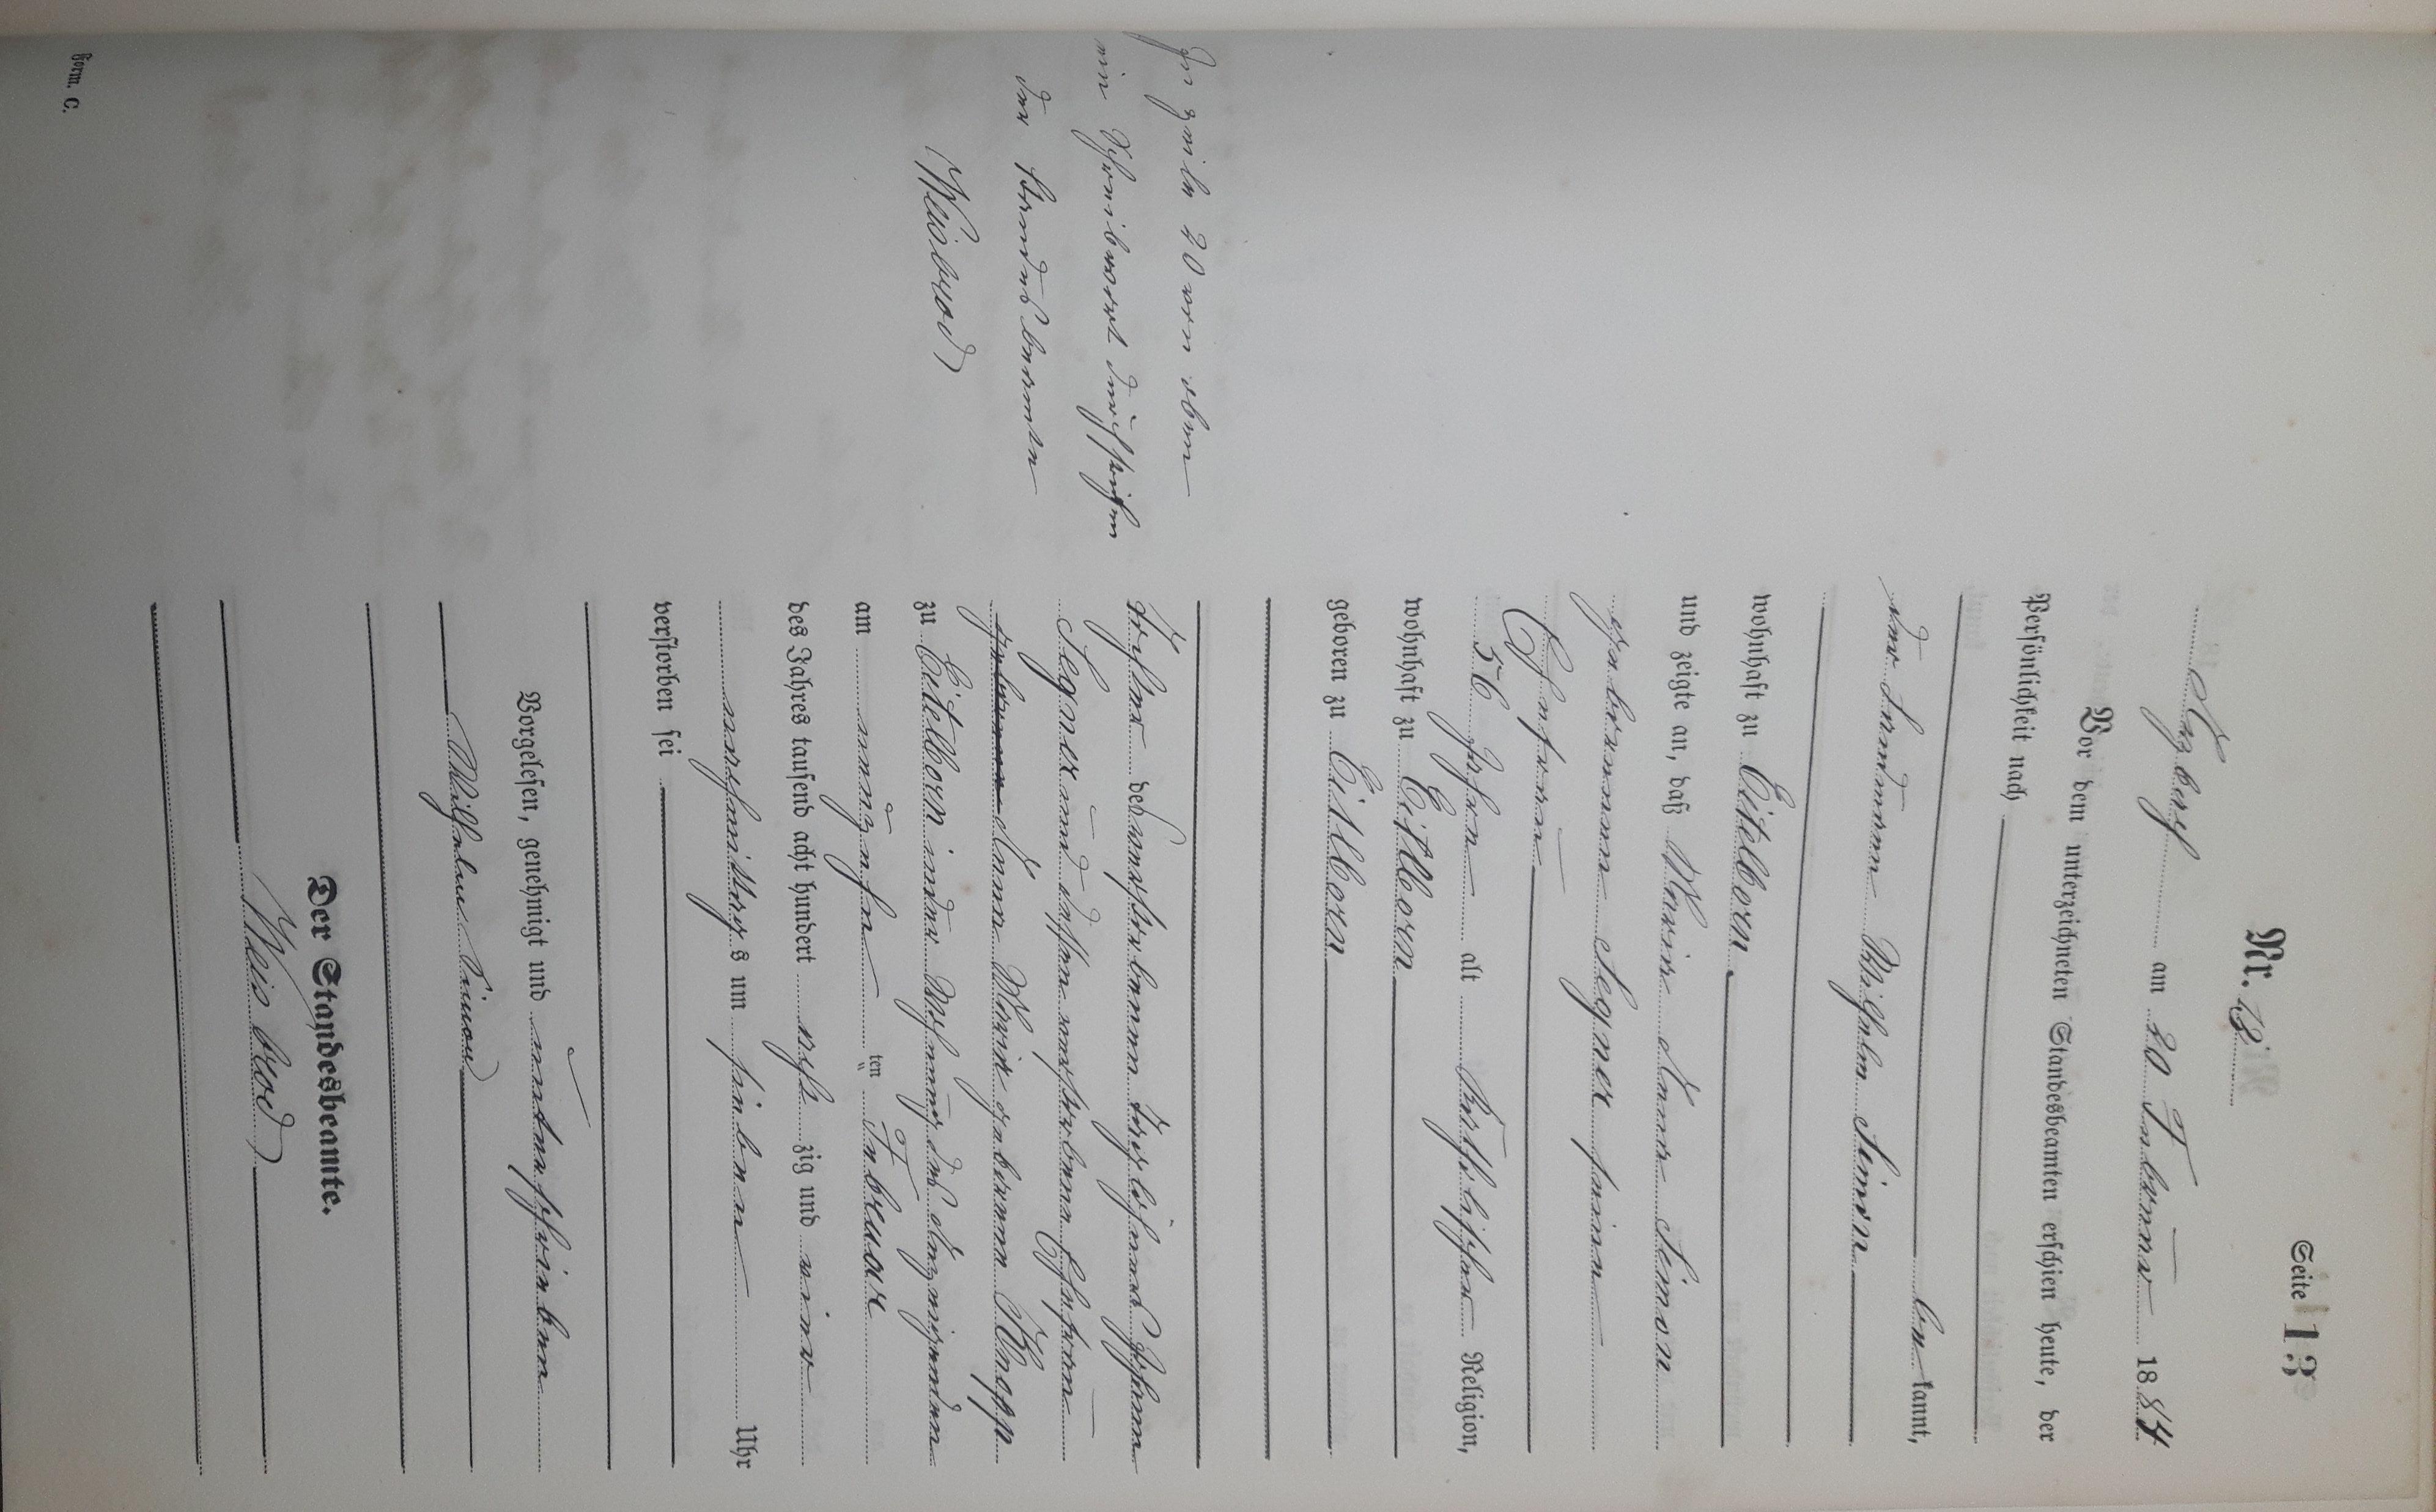 Seite 13
Nr. 13
Arzbach am 20 Februar 1884
Vor dem unterzeichneten Standesbeamten erschien heute, der
Persönlichkeit nach
bekannt,
der Landmann Wilhelm Simon
wohnhaft zu Eitelborn
und zeigte an, daß Maria Anna Simon
geborenen Segner seine
Ehefrau
56 Jahre alt Katholischer Religion,
wohnhaft zu Eitelborn
geboren zu Eitelborn
Tochter des verstorbenen Tagelöhners Johann
Segner und dessen verstorbene Ehefrau
geborene Anna Maria geborenen Knopp
zu Eitelborn in der Wohnung des Anzeigenden
am neünzehnten Februar
des Jahres tausend acht hundert achtzig und vier
nachmittags um sieben Uhr
verstorben sei
Vorgelesen, genehmigt und unterschrieben
Wilhelm Simon
Der Standesbeamte.
Weisbrod
In Zeile 20 von oben
ein Schreibwort durchstrichen
Der Standesbeamte
Weisbrod
Form. C.